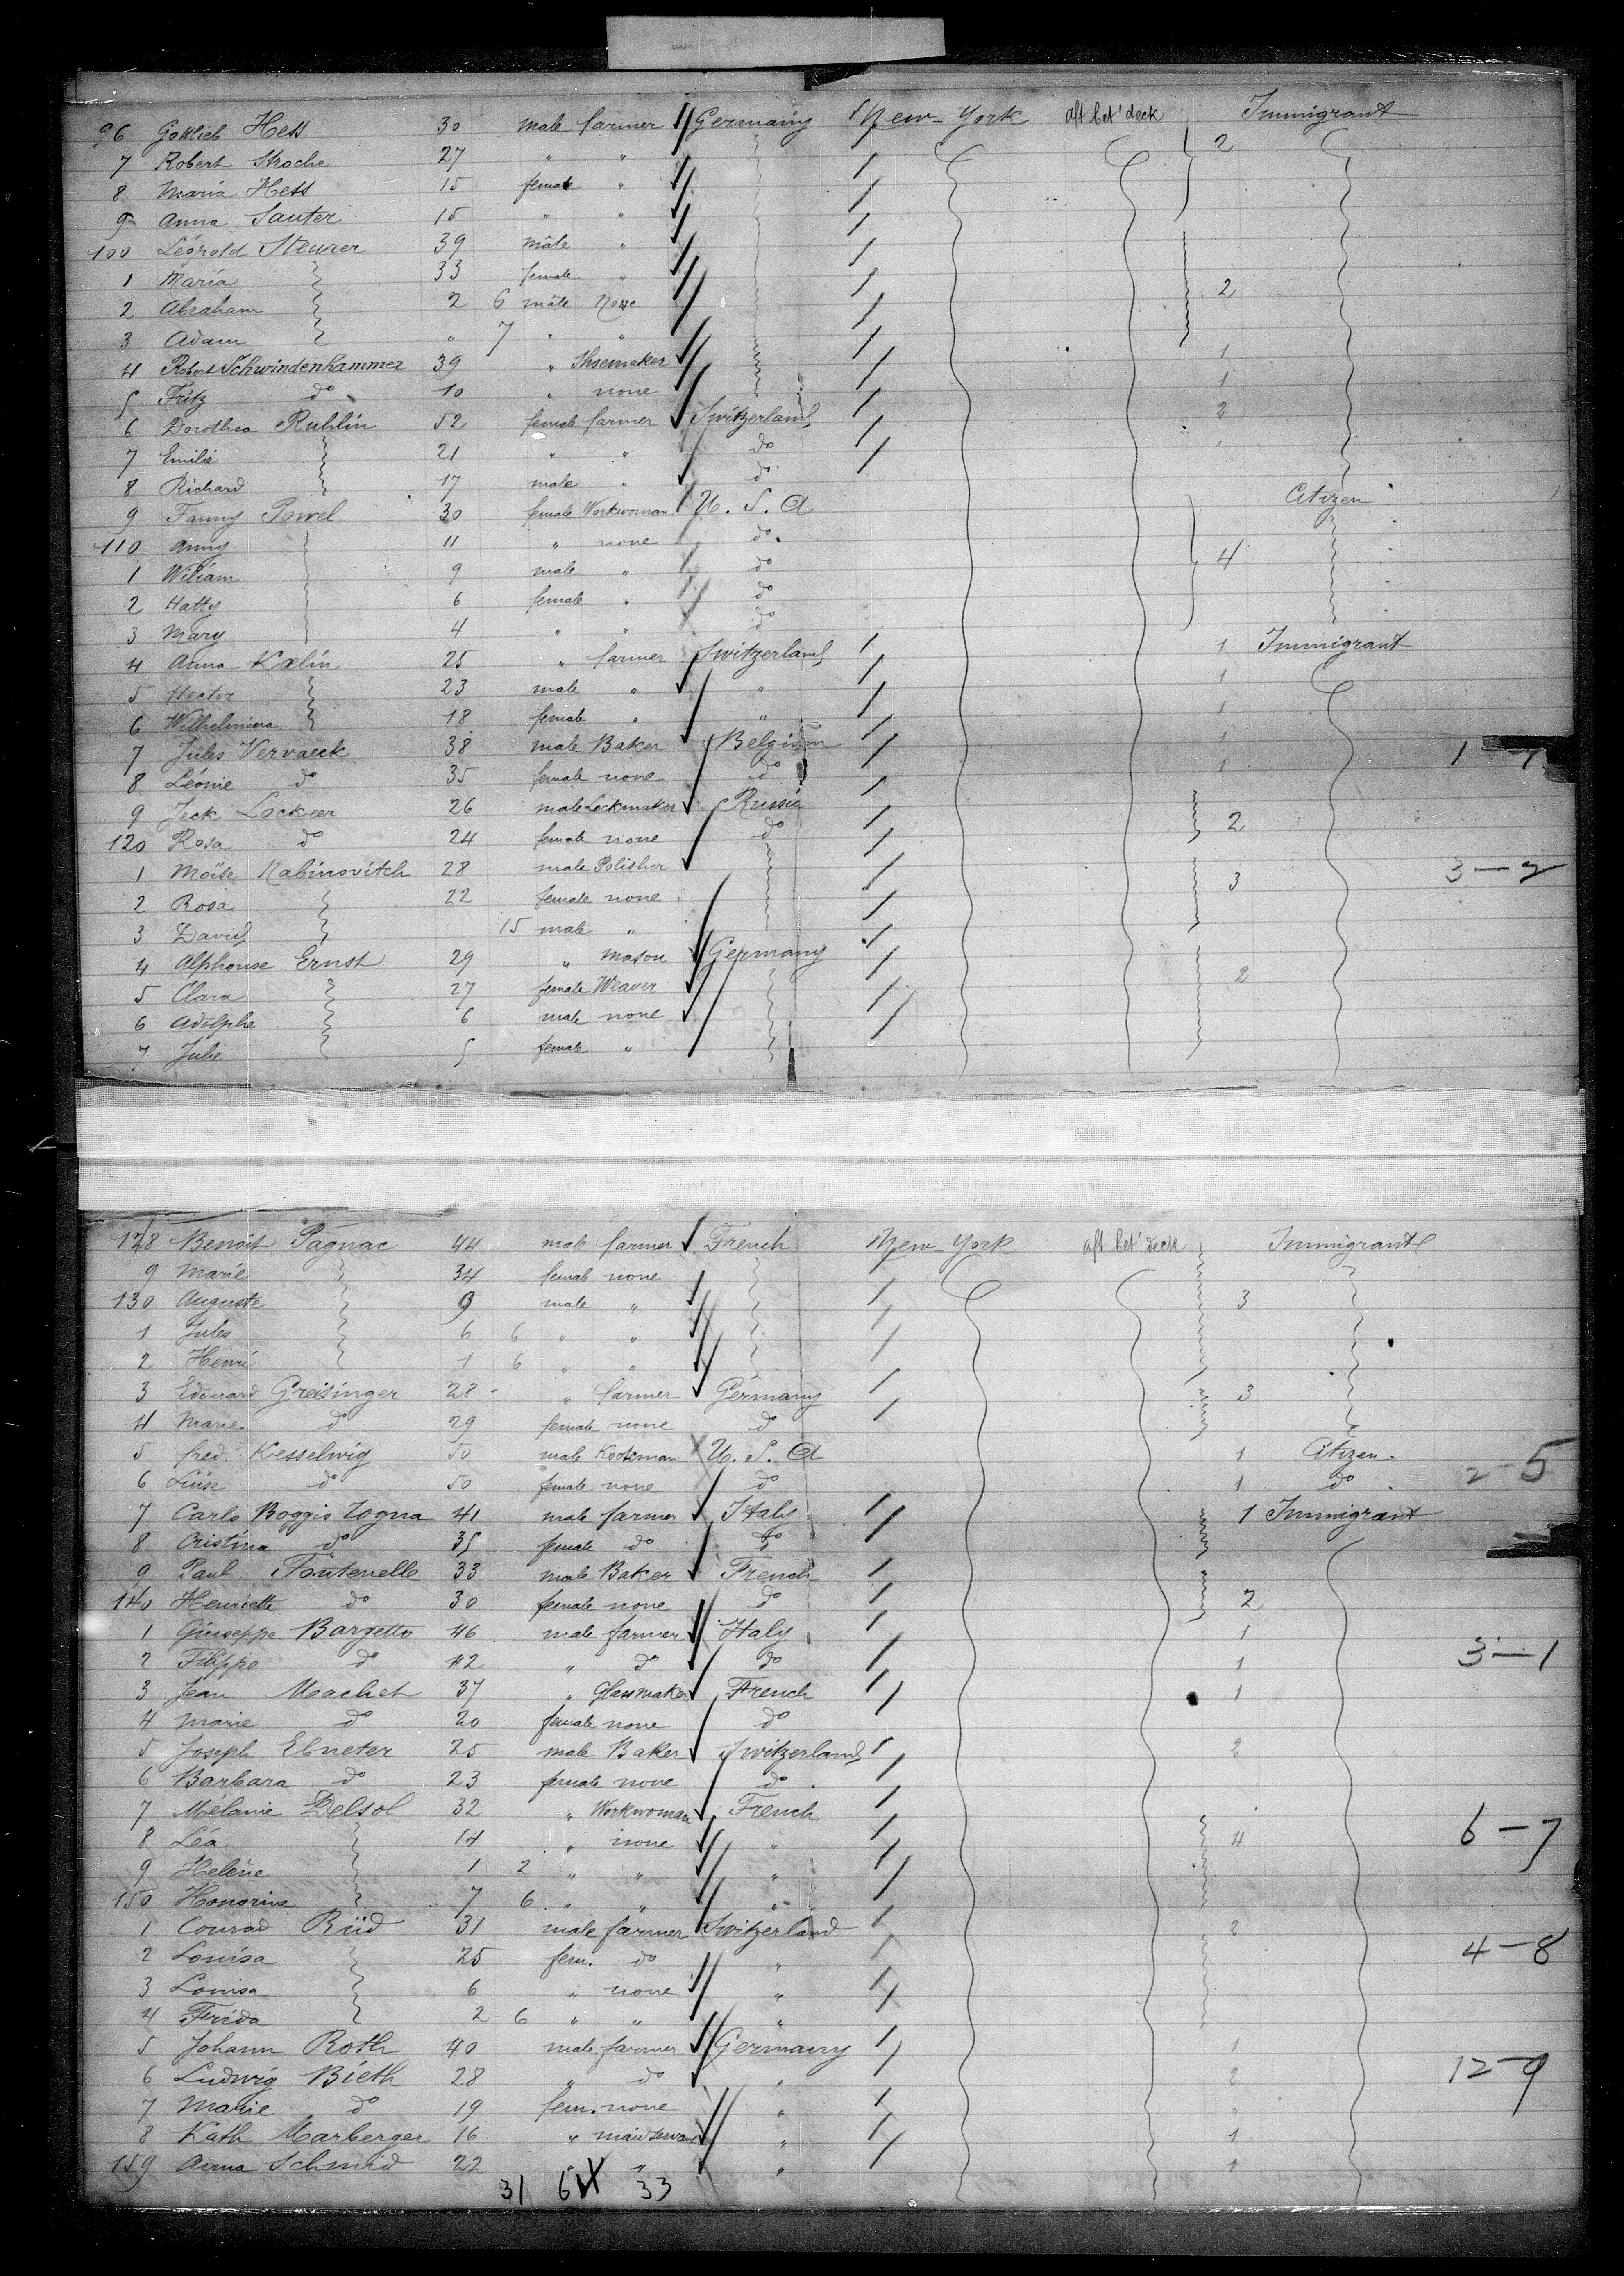 96 Gottlieb Hess 30 male farmer Germany New-York aft bet' deck 2 Immigrant
7 Robert Stroche 27 " "
8 Maria Hess 15 female "
9 Anna Sauter 15 " "
100 Léopold Steurer 39 mâle "
1 Maria 33 female "
2 Abraham 2 6 mâle None 2
3 Adam " 7 " "
4 Robert Schwindenhammer 39 " Shoemaker 1
5 Fritz do 10 " none 1
6 Dorothea Ruhlin 52 female farmer Switzerland 2
7 Emilie 21 " " do
8 Richard 17 male " do
9 Fanny Powel 30 female Workwoman U. S. A Citizen
110 Anny 11 " none do 4
1 Wiliam 9 male " do
2 Hatty 6 female " do
3 Mary 4 " " do
4 Anna Kælin 25 " farmer Switzerland 1 Immigrant
5 Hector 23 male " " 1
6 Wilhelmina 18 female " " 1
7 Jules Vervaeck 38 male Baker Belgium 1
8 Léonie do 35 female none do 1
9 Jeck Lockeer 26 male Lockmaker Russie
120 Rosa do 24 female none do 2
1 Moïse Rabinovitch 28 male Polisher 3 3-2
2 Rosa 22 female none
3 David 15 male "
4 Alphonse Ernst 29 " Mason Germany
5 Clara 27 female Weaver 2
6 Adolphe 6 male none
7 Julie 5 female "
128 Benoit Pagnac 44 male farmer French New-York aft bet' deck Immigrant
9 Marie 34 female none
130 Auguste 9 male " 3
1 Jules 6 6 " "
2 Henri 1 6 " "
3 Edouard Greisinger 28 " farmer Germany 3
4 Marie do 29 female none do
5 fred. Kesselwig 50 male U. S. A 1 Citizen
6 Luise do 50 female none do 1 do 2-5
7 Carlo Boggio Togna 41 male farmer Italy 1 Immigrant
8 Cristina do 35 female do do
9 Paul Fontenelle 33 male Baker French
140 Henriette do 30 female none do 2
1 Giuseppe Bargetto 46 male farmer Italy 1
2 Filippo do 42 " do do 1 3-1
3 Jean Machet 37 " Glassmaker French 1
4 Marie do 20 female none do
5 Joseph Ebneter 25 male Baker Switzerland 2
6 Barbara do 23 female none do
7 Mélanie Delsol 32 " Workwoman French
8 Léa 14 " none " 4 6-7
9 Helène 1 2 " " "
150 Honorine 7 6 " " "
1 Conrad Rüd 31 male farmer Switzerland 2
2 Louisa 25 fem. do " 4-8
3 Louisa 6 " none "
4 Frida 2 6 " " "
5 Johann Roth 40 male farmer Germany 1
6 Ludwig Bieth 28 " do " 2 12-9
7 Marie do 19 fem. none " "
8 Kath Marberger 16 " maid servant " 1
159 Anna Schmid 22 " " " 1
31 64 33